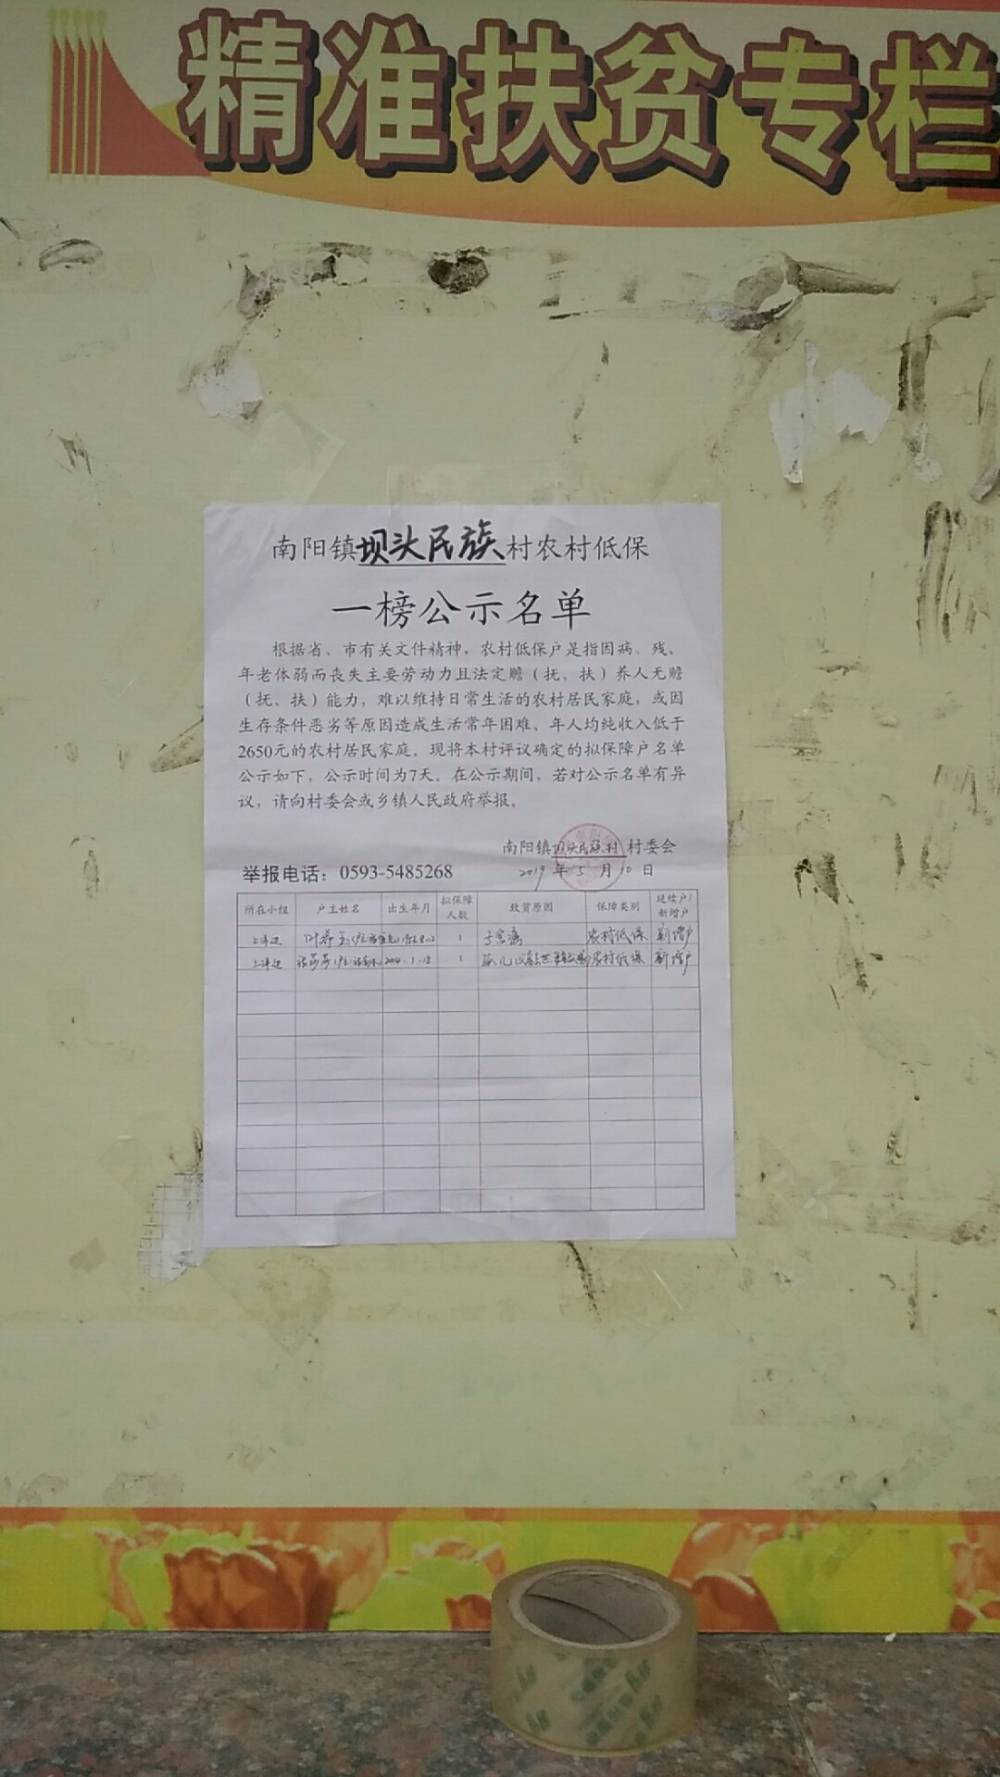 精准扶贫专栏
南阳镇坝头民族村农村低保
一榜公示名单
根据省、市有关文件精神，农村低保户是指因病、残、
年老体弱而丧失主要劳动力且法定赡（抚、扶）养人无赡
（抚、扶）能力，难以维持日常生活的农村居民家庭，或因
生存条件恶劣等原因造成生活常年困难、年人均纯收入低于
2650元的农村居民家庭。现将本村评议确定的拟保障户名单
公示如下，公示时间为7天。在公示期间，若对公示名单有异
议，请向村委会或乡镇人民政府举报。
南阳镇坝头民族村 村委会
举报电话：0593-5485268 2019 年 5 月 10 日
所在小组 户主姓名 出生年月 拟保障人数 致贫原因 保障类别 延续户/新增户
1 农村低保 新增户
1 农村低保 新增户